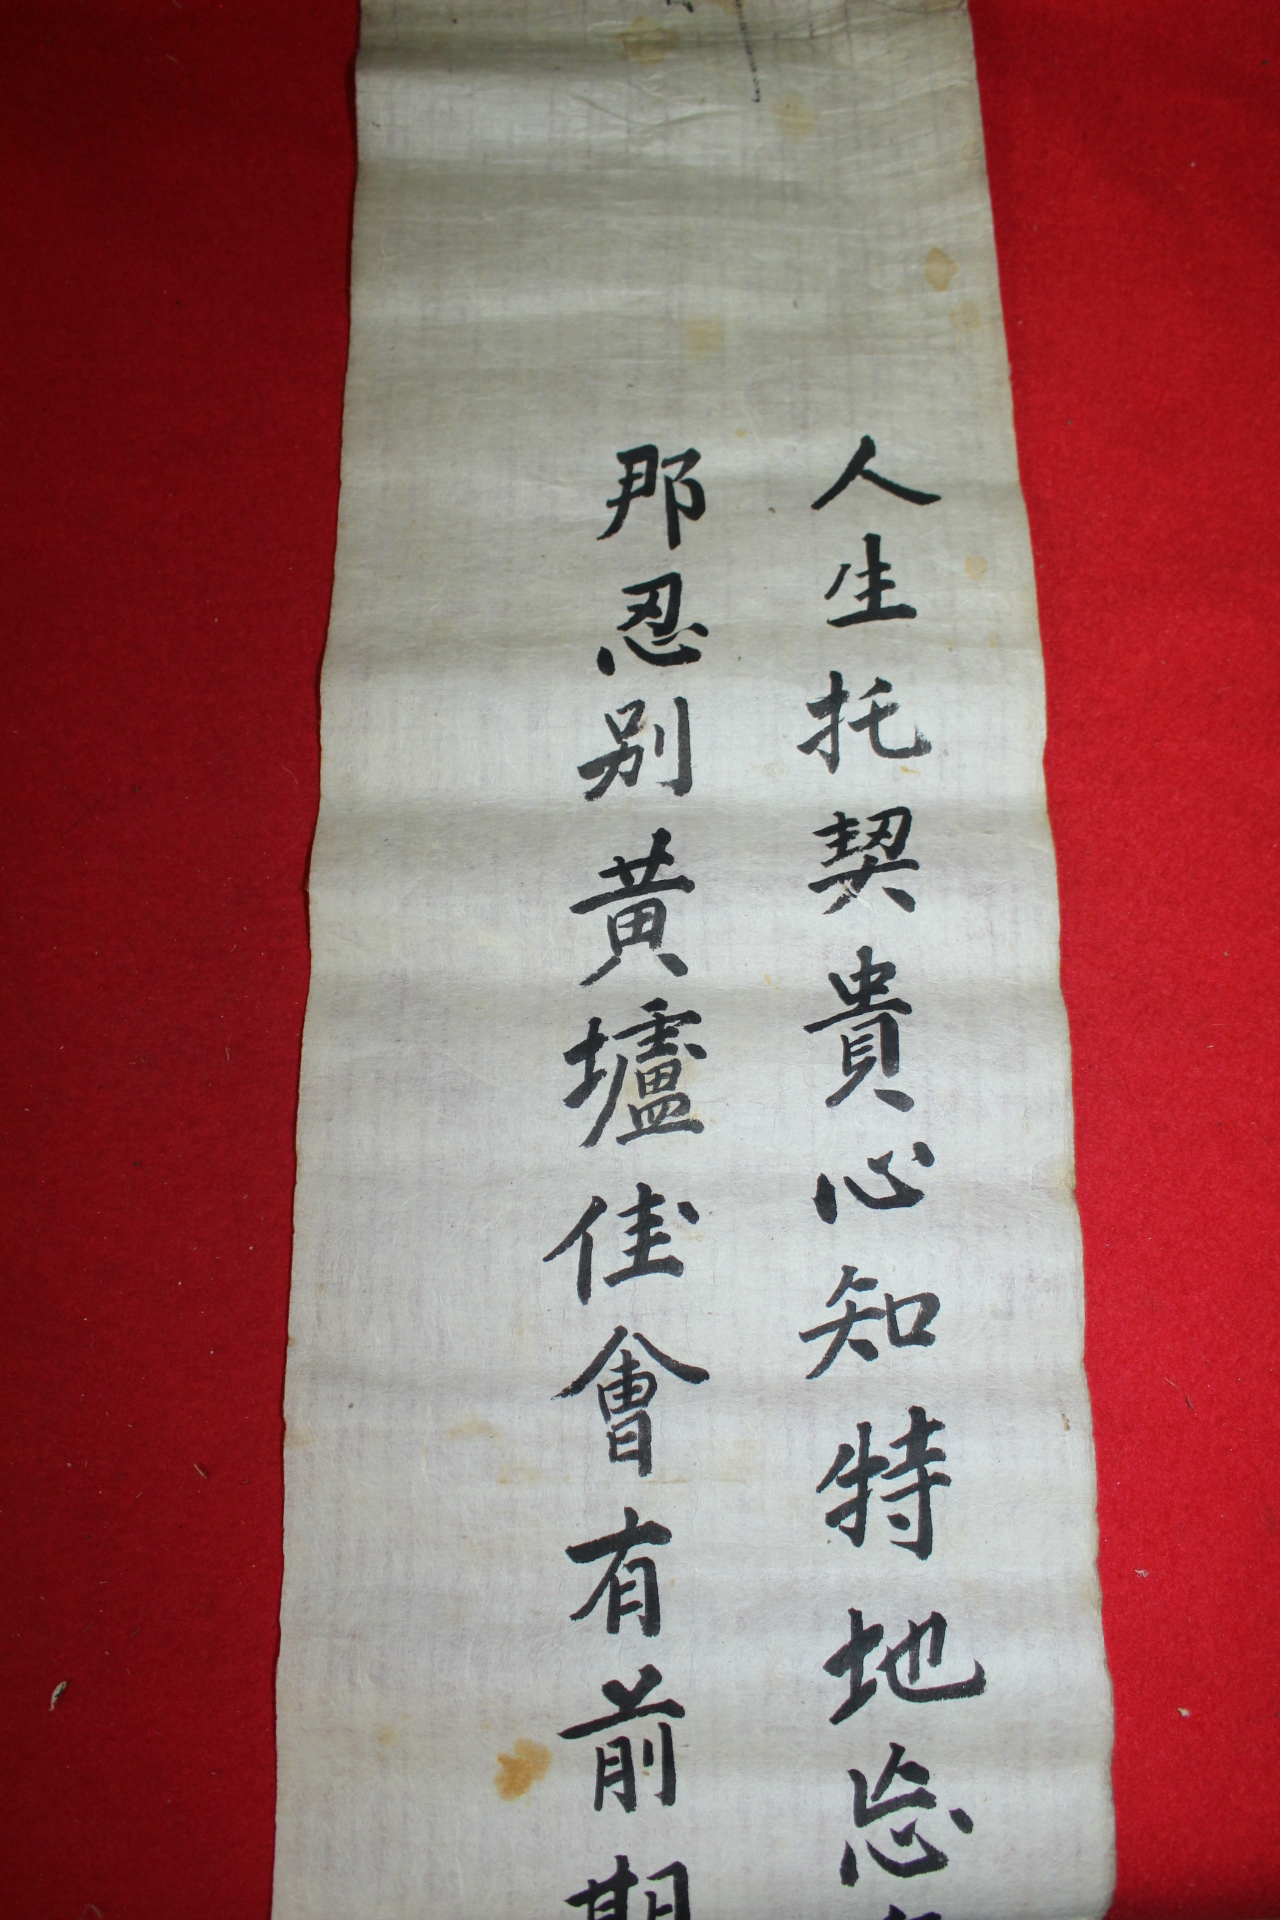 人生托契貴心知特地忘
那忍別黃壚佳會有前期